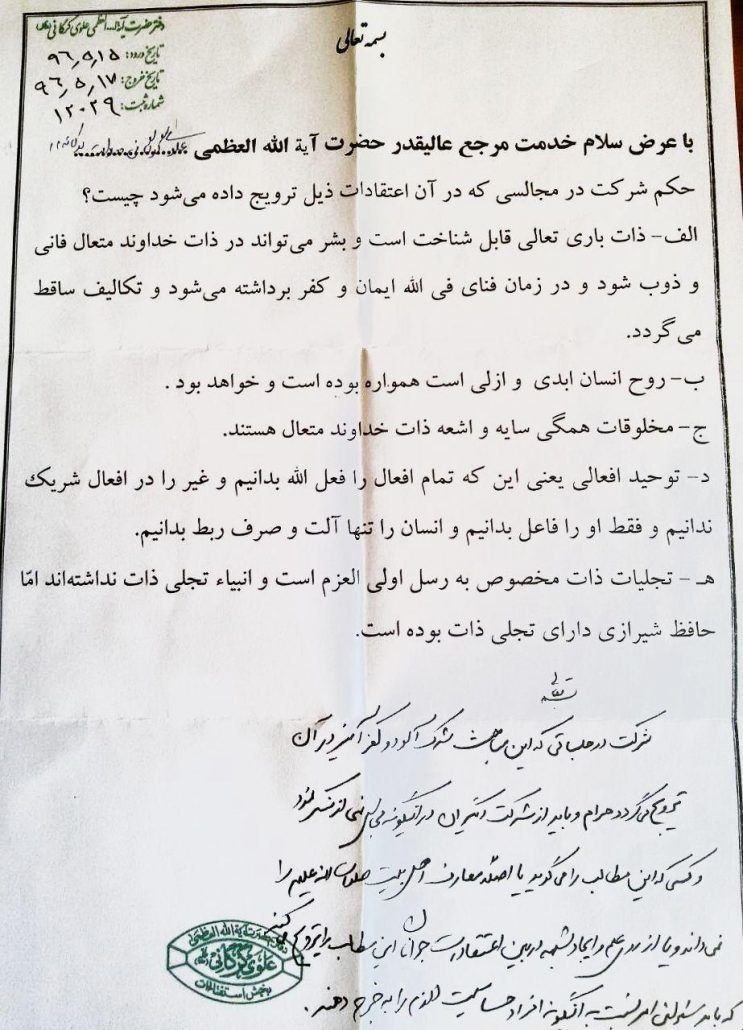 دفتر حضرت آیة الله العظمی علوی گرگانی
تاریخ ورود: ۹۶٫۵٫۱۵
تاریخ خروج: ۹۶٫۵٫۱۷
شماره ثبت: ۱۲۰۲۹
بسمه تعالی
با عرض سلام خدمت مرجع عالیقدر حضرت آیة الله العظمی علوی گرگانی
حکم شرکت در مجالسی که در آن اعتقادات ذیل ترویج داده می‌شود چیست؟
الف- ذات باری تعالی قابل شناخت است و بشر می‌تواند در ذات خداوند متعال فانی
و ذوب شود و در زمان فنای فی الله ایمان و کفر برداشته می‌شود و تکالیف ساقط
می‌گردد.
ب- روح انسان ابدی و ازلی است همواره بوده است و خواهد بود .
ج- مخلوقات همگی سایه و اشعه ذات خداوند متعال هستند.
د- توحید افعالی یعنی این که تمام افعال را فعل الله بدانیم و غیر را در افعال شریک
ندانیم و فقط او را فاعل بدانیم و انسان را تنها آلت و صرف ربط بدانیم.
هـ - تجلیات ذات مخصوص به رسل اولی العزم است و انبیاء تجلی ذات نداشته‌اند امّا
حافظ شیرازی دارای تجلی ذات بوده است.
بسمه تعالی
شرکت در جلساتی که این مباحث شرک آلود و کفر آمیز در آن
ترویج می‌گردد حرام و باید از شرکت دیگران در اینگونه مجالس نهی از منکر شود
و کسی که این مطالب را می‌گوید یا اصلا معارف اهل بیت صلوات الله علیهم را
نمی‌داند و یا از روی علم و ایجاد شبهه در بین اعتقادات جوانان این مطالب را ترویج می‌کند
که باید مسئولین امر نسبت به اینگونه افراد حساسیت لازم را به خرج دهند.
دفتر حضرت آیة الله العظمی
علوی گرگانی
بخش استفتائات